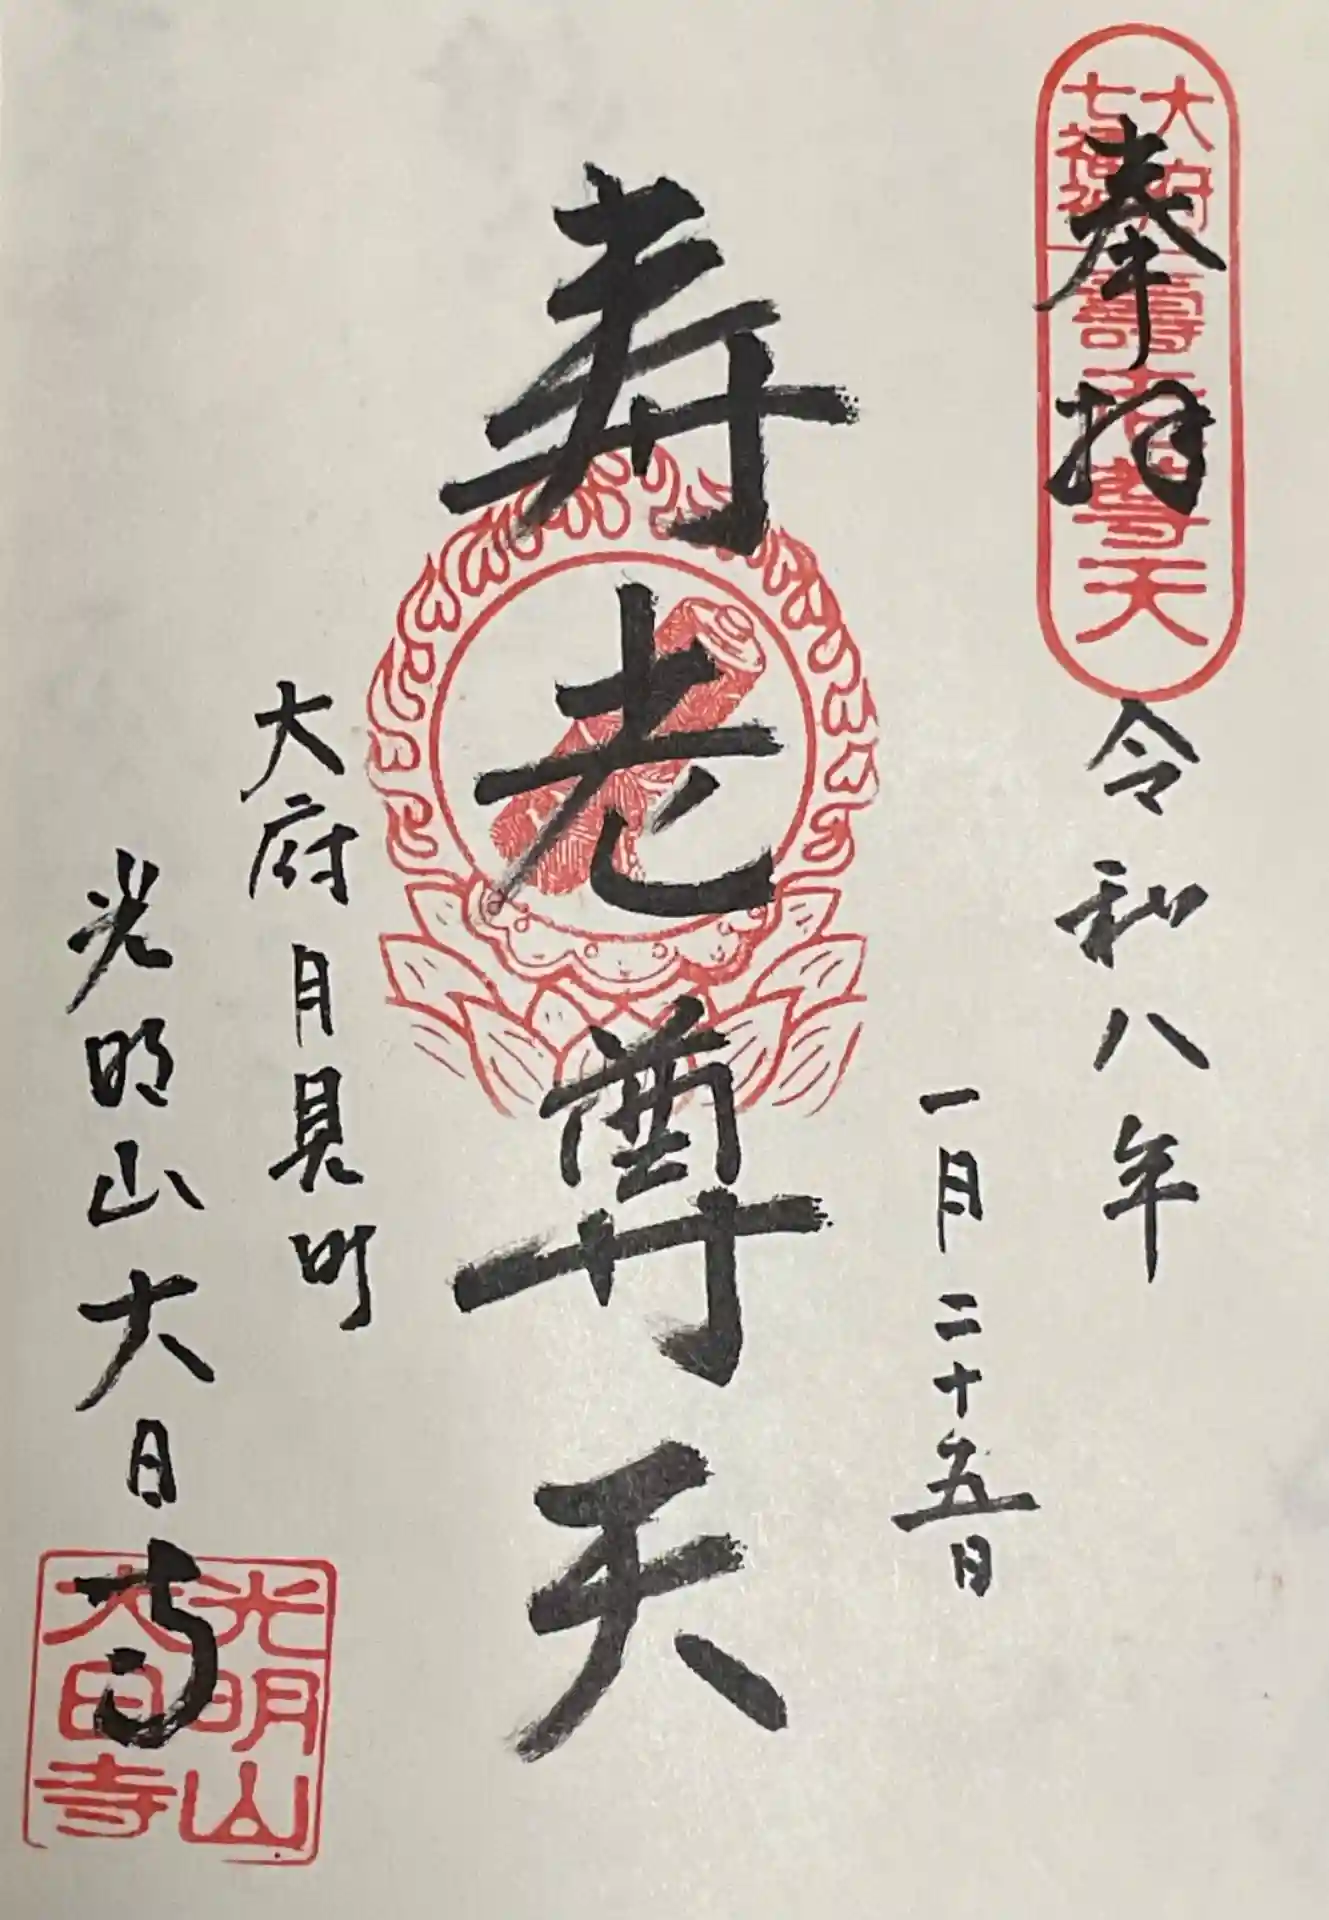 奉拝
大府
七福神
壽老尊天
令和八年
一月二十五日
寿老尊天
大府月見町
光明山大日寺
光明山
大日寺